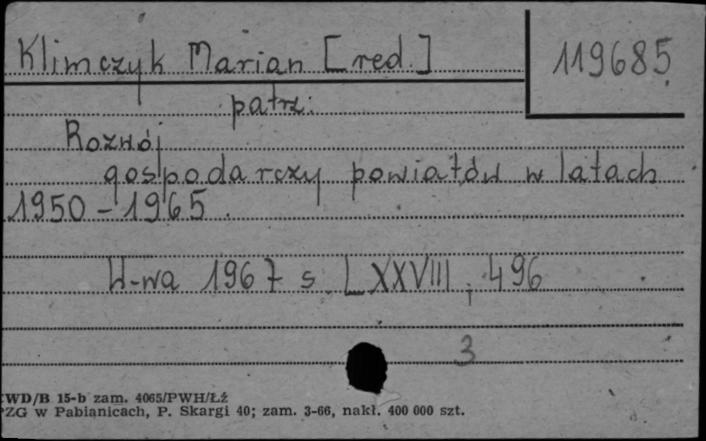 Klimczyk Marian [red.]
119685
patrz:
Rozwój
gospodarczy powiatów w latach
1950-1965.
W-wa 1967 s. LXXVIII, 496
3
WD/B 15-b zam. 4065/PWH/Łź
PZG w Pabianicach, P. Skargi 40; zam. 3-66, nakł. 400 000 szt.